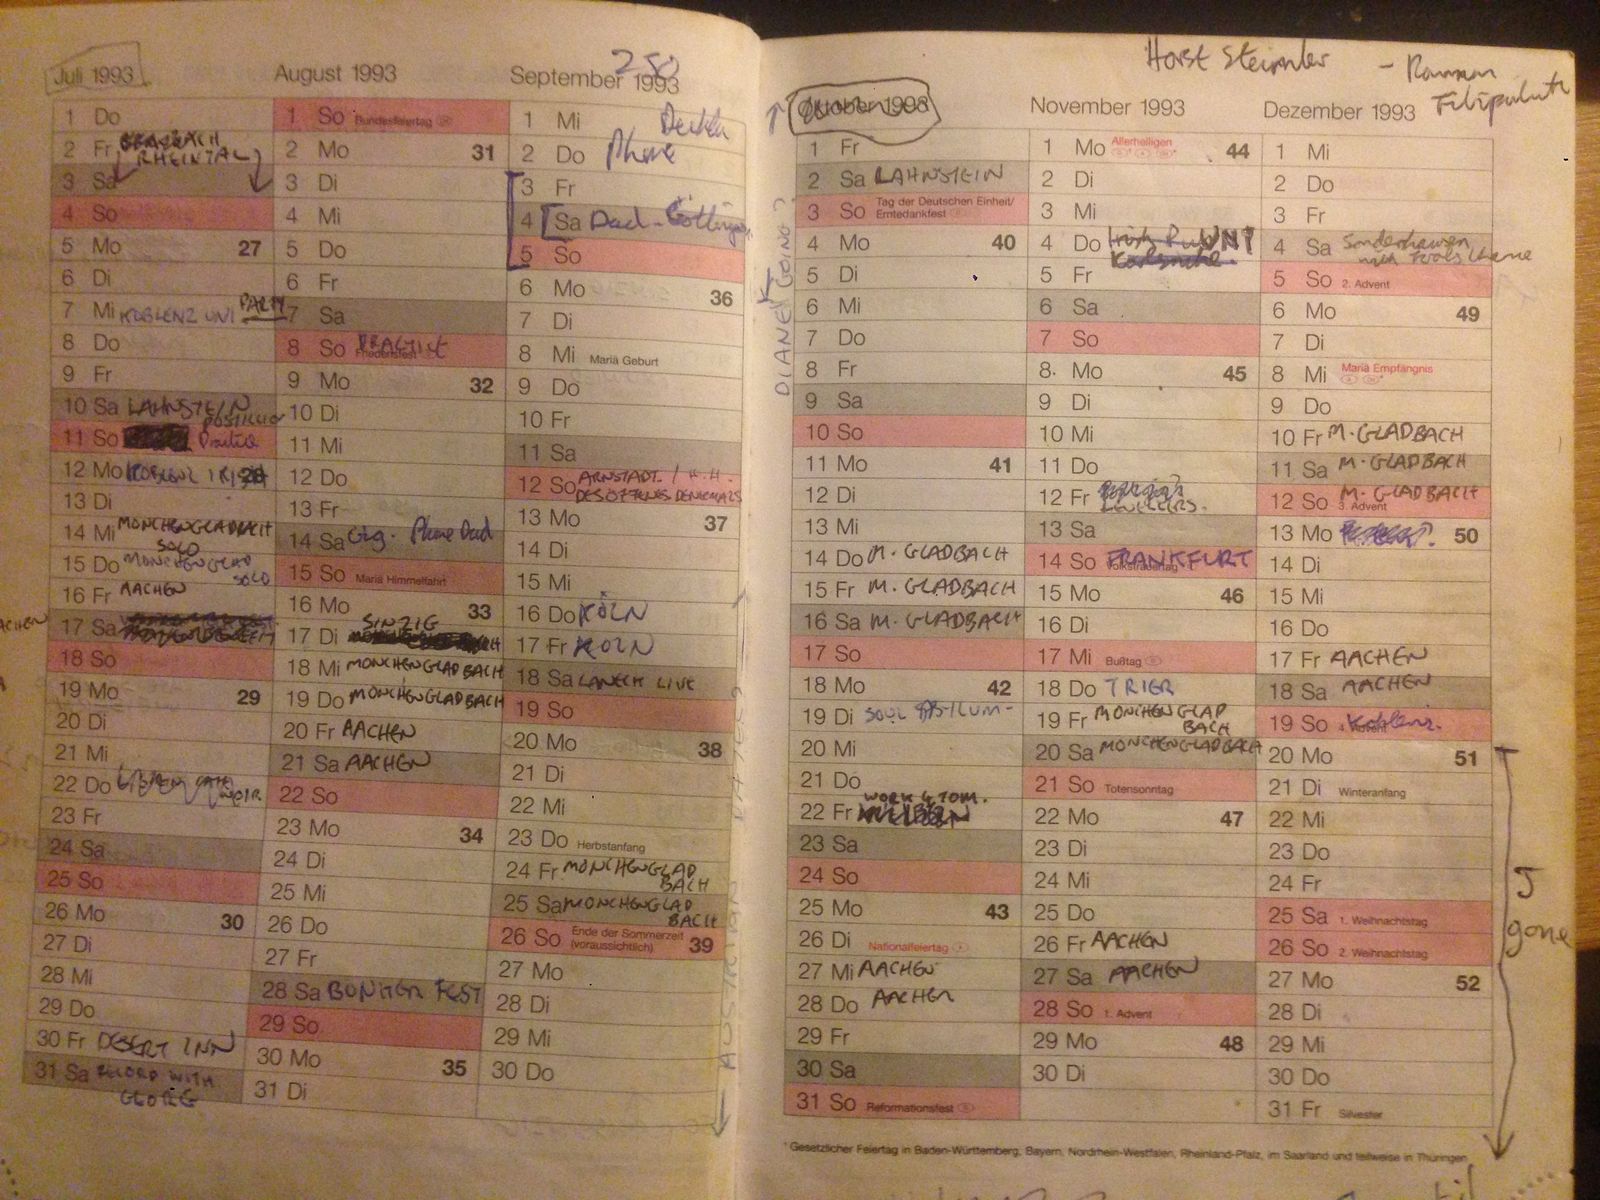 Juli 1993
1 Do
2 Fr BRAUBACH
RHEINTAL
3 Sa
4 So
5 Mo 27
6 Di
7 Mi KOBLENZ UNI PARTY
8 Do
9 Fr
10 Sa LAHNSTEIN
11 So Practice
12 Mo KOBLENZ IRISH
13 Di
14 Mi MÖNCHENGLADBACH
SOLO
15 Do MÖNCHENGLAD
SOLO
16 Fr AACHEN
17 Sa
18 So
19 Mo 29
20 Di
21 Mi
22 Do NOIR
23 Fr
24 Sa
25 So
26 Mo 30
27 Di
28 Mi
29 Do
30 Fr DESERT INN
31 Sa RECORD WITH
GEORG
August 1993
1 So Bundesfeiertag
2 Mo 31
3 Di
4 Mi
5 Do
6 Fr
7 Sa
8 So PRACTICE
Friedensfest
9 Mo 32
10 Di
11 Mi
12 Do
13 Fr
14 Sa Gig. Phone Dad
15 So Mariä Himmelfahrt
16 Mo 33
SINZIG
17 Di
18 Mi MÖNCHENGLADBACH
19 Do MÖNCHENGLADBACH
20 Fr AACHEN
21 Sa AACHEN
22 So
23 Mo 34
24 Di
25 Mi
26 Do
27 Fr
28 Sa BONNER FEST
29 So
30 Mo 35
31 Di
250
September 1993
1 Mi
2 Do Phone
3 Fr
4 Sa Dad - Göttingen
5 So
6 Mo 36
7 Di
8 Mi Mariä Geburt
9 Do
10 Fr
11 Sa
12 So ARNSTADT / H.H.
DES OFFENES DENKMALS
13 Mo 37
14 Di
15 Mi
16 Do KÖLN
17 Fr KÖLN
18 Sa LANECK LIVE
19 So
20 Mo 38
21 Di
22 Mi
23 Do Herbstanfang
24 Fr MÖNCHENGLAD
BACH
25 Sa MÖNCHENGLAD
BACH
26 So Ende der Sommerzeit
(voraussichtlich) 39
27 Mo
28 Di
29 Mi
30 Do
DIANE GOING?
Oktober 1993
1 Fr
2 Sa LAHNSTEIN
3 So Tag der Deutschen Einheit/
Erntedankfest
4 Mo 40
5 Di
6 Mi
7 Do
8 Fr
9 Sa
10 So
11 Mo 41
12 Di
13 Mi
14 Do M. GLADBACH
15 Fr M. GLADBACH
16 Sa M. GLADBACH
17 So
18 Mo 42
19 Di SOUL ASYLUM -
20 Mi
21 Do
WORK 4 TOM.
22 Fr
23 Sa
24 So
25 Mo 43
26 Di Nationalfeiertag
27 Mi AACHEN
28 Do AACHEN
29 Fr
30 Sa
31 So Reformationsfest
Horst Steimler -
November 1993
1 Mo Allerheiligen 44
2 Di
3 Mi
4 Do Irish Pub UNI
Karlsruhe
5 Fr
6 Sa
7 So
8 Mo 45
9 Di
10 Mi
11 Do
12 Fr
LEVELLERS.
13 Sa
14 So FRANKFURT
Volkstrauertag
15 Mo 46
16 Di
17 Mi Bußtag
18 Do TRIER
19 Fr MÖNCHENGLAD
BACH
20 Sa MÖNCHENGLADBACH
21 So Totensonntag
22 Mo 47
23 Di
24 Mi
25 Do
26 Fr AACHEN
27 Sa AACHEN
28 So 1. Advent
29 Mo 48
30 Di
Dezember 1993
1 Mi
2 Do
3 Fr
4 Sa Sondershausen
with Fools
5 So 2. Advent
6 Mo 49
7 Di
8 Mi Mariä Empfängnis
9 Do
10 Fr M. GLADBACH
11 Sa M. GLADBACH
12 So M. GLADBACH
3. Advent
13 Mo 50
14 Di
15 Mi
16 Do
17 Fr AACHEN
18 Sa AACHEN
19 So Koblenz.
4. Advent
20 Mo 51
21 Di Winteranfang
22 Mi
23 Do
24 Fr
25 Sa 1. Weihnachtstag
26 So 2. Weihnachtstag
27 Mo 52
28 Di
29 Mi
30 Do
31 Fr Silvester
J
gone
* Gesetzlicher Feiertag in Baden-Württemberg, Bayern, Nordrhein-Westfalen, Rheinland-Pfalz, im Saarland und teilweise in Thüringen